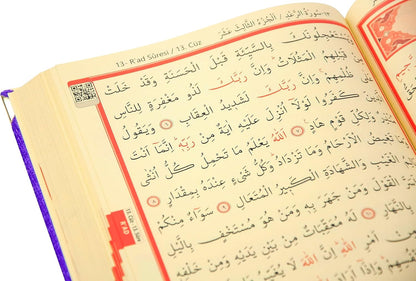 13- R'ad Sûresi / 13. Cüz
سُورَةُ الرَّعْدِ / اَلْجُزْءُ الثَّالِثَ عَشَرَ
بِالسَّيِّئَةِ قَبْلَ الْحَسَنَةِ وَقَدْ خَلَتْ
قَبْلِهِمُ الْمَثُلَاتُ وَاِنَّ رَبَّكَ لَذُو مَغْفِرَةٍ لِلنَّاسِ
ظُلْمِهِمْ وَاِنَّ رَبَّكَ لَشَدِيدُ الْعِقَابِ ٦ وَيَقُولُ
كَفَرُوا لَوْلَا اُنْزِلَ عَلَيْهِ اٰيَةٌ مِنْ رَبِّهِ اِنَّمَا اَنْتَ
وَلِكُلِّ قَوْمٍ هَادٍ ٧ اَللّٰهُ يَعْلَمُ مَا تَحْمِلُ كُلُّ اُنْثٰى
تَغِيضُ الْاَرْحَامُ وَمَا تَزْدَادُ وَكُلُّ شَيْءٍ عِنْدَهُ بِمِقْدَارٍ ٨
الْغَيْبِ وَالشَّهَادَةِ الْكَبِيرُ الْمُتَعَالِ ٩ سَوَاءٌ مِنْكُمْ
الْقَوْلَ وَمَنْ جَهَرَ بِهِ وَمَنْ هُوَ مُسْتَخْفٍ بِالَّيْلِ
١٠ لَهُ مُعَقِّبَاتٌ مِنْ بَيْنِ يَدَيْهِ وَمِنْ خَلْفِهِ
اَمْرِ اللّٰهِ اِنَّ اللّٰهَ لَا يُغَيِّرُ
وَاِذَا اَرَادَ